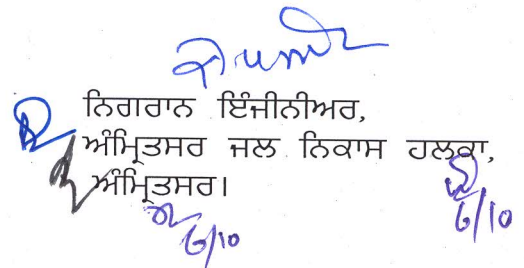 ਨਿਗਰਾਨ ਇੰਜੀਨੀਅਰ,
ਅੰਮ੍ਰਿਤਸਰ ਜਲ ਨਿਕਾਸ ਹਲਕਾ,
ਅੰਮ੍ਰਿਤਸਰ।
6/10
6/10